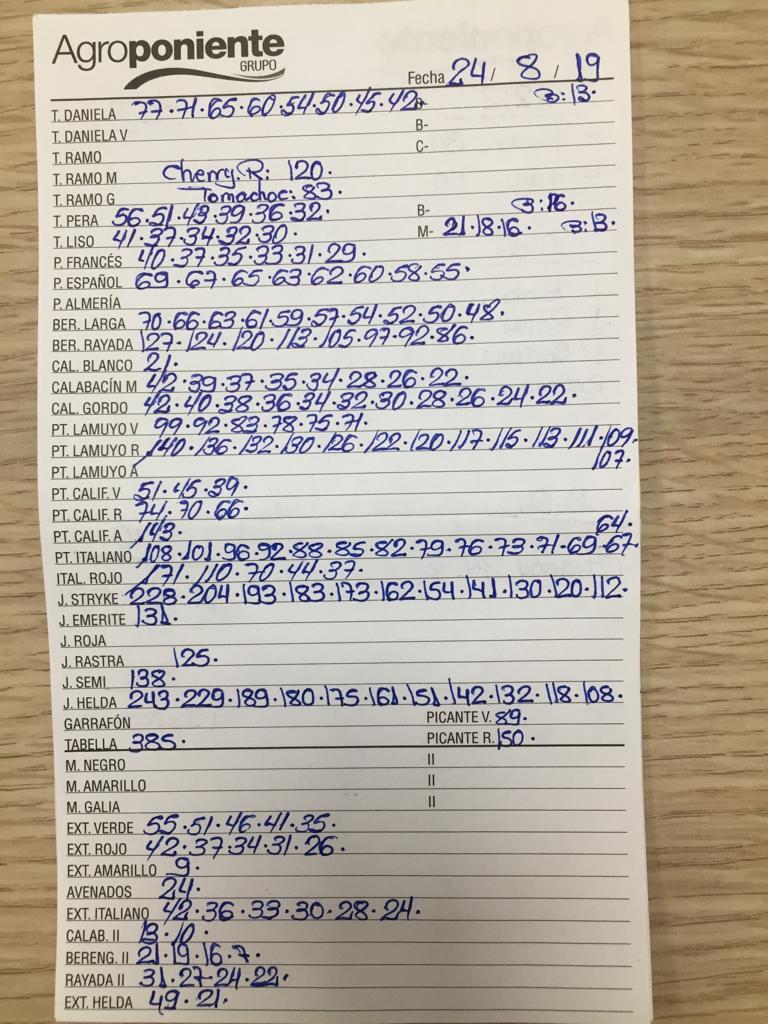 Agroponiente
GRUPO
Fecha 24/ 8 / 19
T. DANELA 77·71·65·60·54·50·45·42· B:13·
T. DANIELA V B-
T. RAMO C-
T. RAMO M Cherry.R: 120·
T. RAMO G Tomachoc: 83·
T. PERA 56·51·43·39·36·32· B- B:16·
T. LISO 41·37·34·32·30· M- 21·18·16· B:13·
P. FRANCÉS 40·37·35·33·31·29·
P. ESPAÑOL 69·67·65·63·62·60·58·55·
P. ALMERÍA
BER. LARGA 70·66·63·61·59·57·54·52·50·48·
BER. RAYADA 127·124·120·113·105·97·92·86·
CAL. BLANCO 21·
CALABACÍN M 42·39·37·35·34·28·26·22·
CAL. GORDO 42·40·38·36·34·32·30·28·26·24·22·
PT. LAMUYO V 99·92·83·78·75·71·
PT. LAMUYO R 140·136·132·130·126·122·120·117·115·113·111·109·
PT. LAMUYO A 107·
PT. CALIF. V 51·45·39·
PT. CALIF. R 74·70·66·
PT. CALIF. A 143· 64·
PT. ITALIANO 108·101·96·92·88·85·82·79·76·73·71·69·67
ITAL. ROJO 171·110·70·44·37·
J. STRYKE 228·204·193·183·173·162·154·141·130·120·112·
J. EMERITE 131·
J. ROJA
J. RASTRA 125·
J. SEMI 138·
J. HELDA 243·229·189·180·175·161·151·142·132·118·108·
GARRAFÓN PICANTE V. 89·
TABELLA 385· PICANTE R. 150·
M. NEGRO II
M. AMARILLO II
M. GALIA II
EXT. VERDE 55·51·46·41·35·
EXT. ROJO 42·37·34·31·26·
EXT. AMARILLO 9·
AVENADOS 24·
EXT. ITALIANO 42·36·33·30·28·24·
CALAB. II 13·10·
BERENG. II 21·19·16·7·
RAYADA II 31·27·24·22·
EXT. HELDA 49·21·